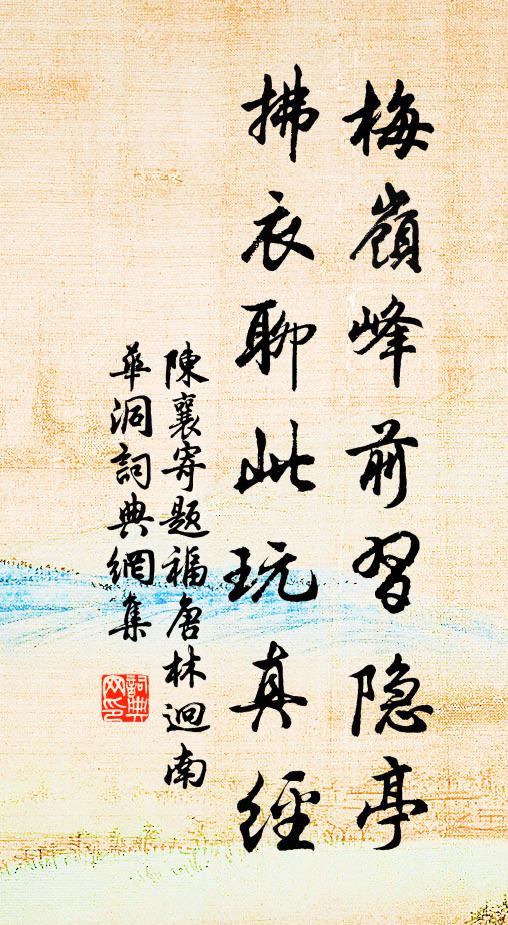 梅嶺峰前習隐亭
拂衣聊此玩真經
陳襄寄題福唐林迥南
華洞詞典網集
詞典
网印